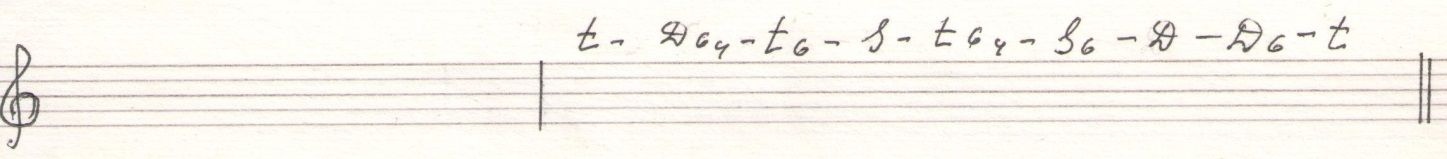 t - D64 - t6 - s - t64 - s6 - D - D6 - t